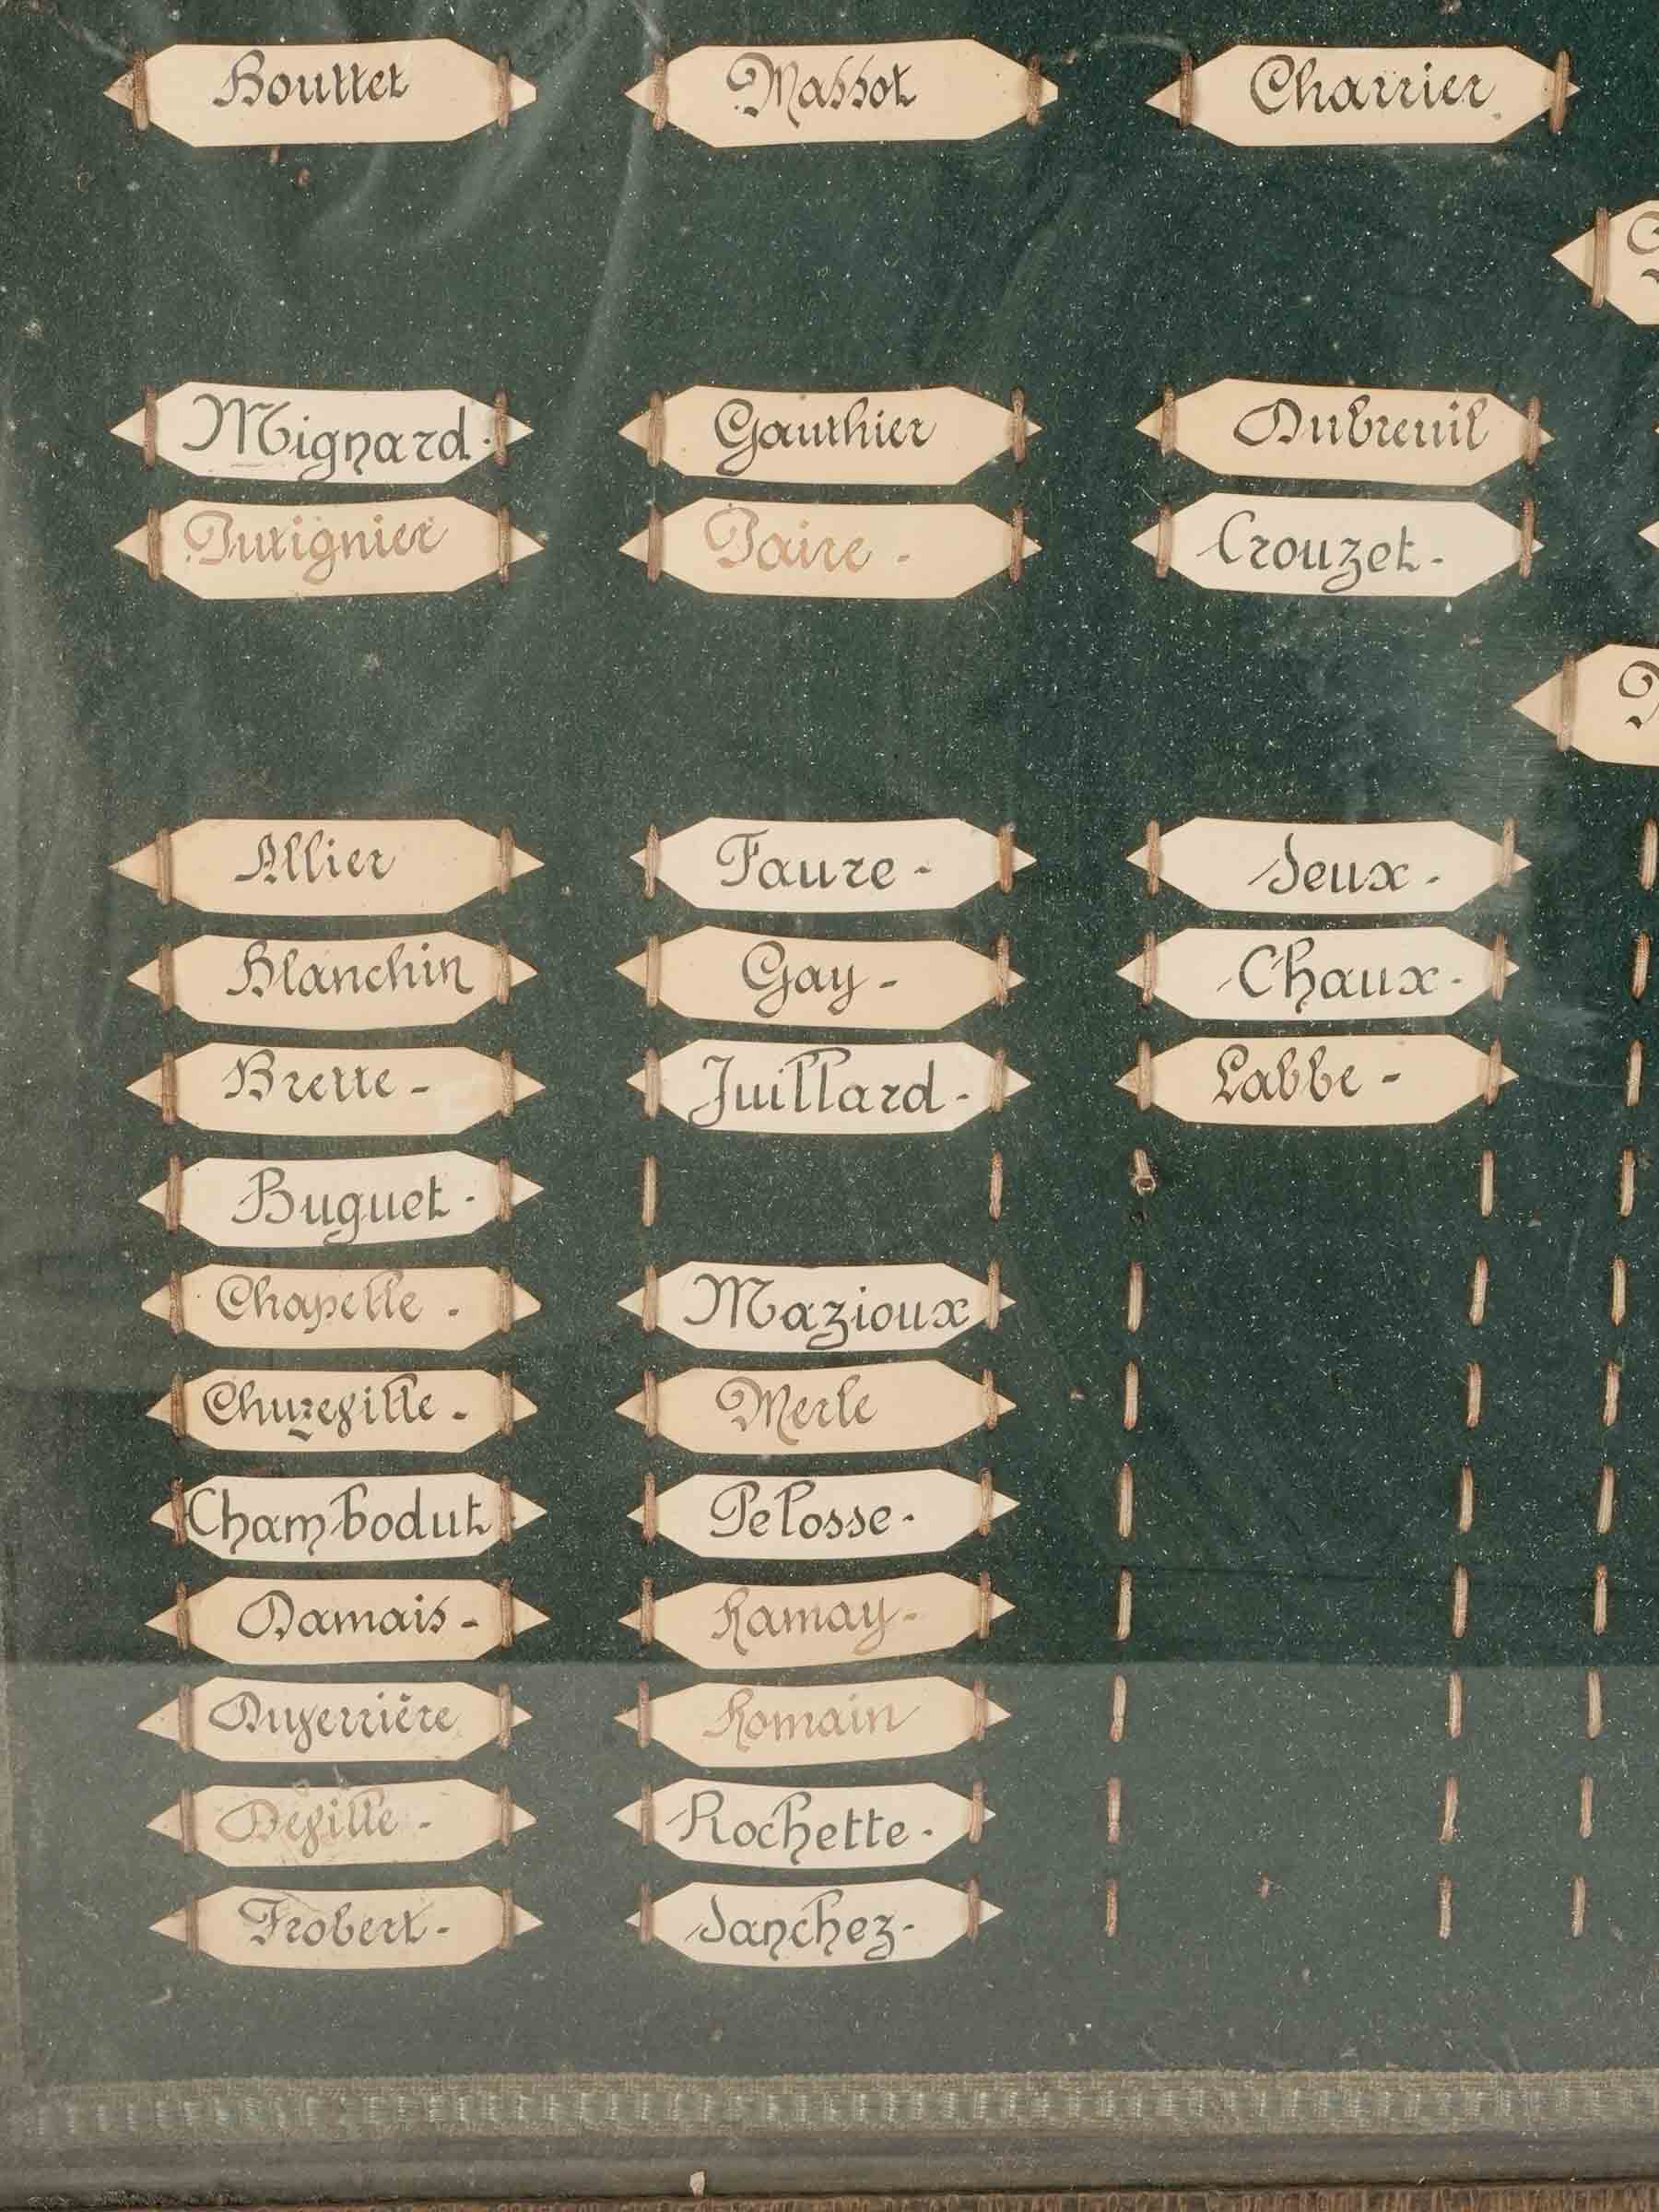 Bouttet Massot Charrier
Mignard. Gauthier Dubreuil
Putignier Paire - Crouzet.
Allier Faure - Jeux.
Blanchin Gay - Chaux.
Brette - Juillard. Labbe -
Buguet.
Chapelle. Mazioux
Chuzeville - Merle
Chambodut. Pelosse.
Damais - Ramay -
Duverrière Romain
Deville - Rochette.
Frobert - Sanchez.